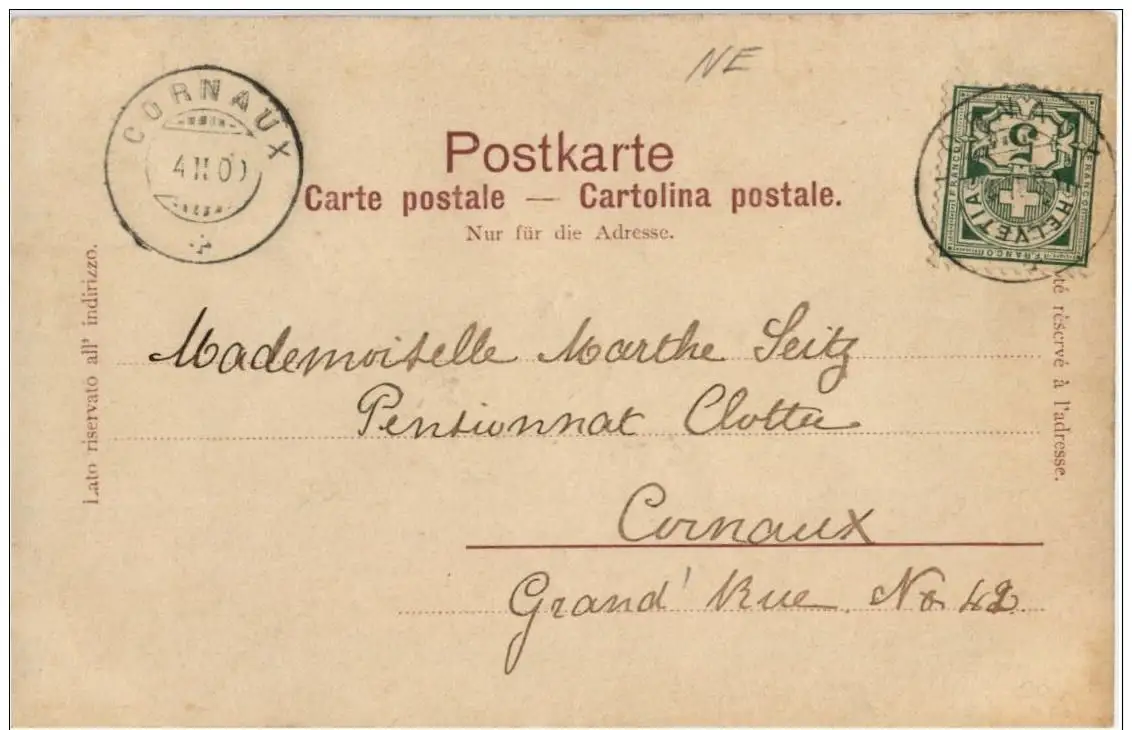 NE
CORNAUX
4 II 0
Postkarte
Carte postale — Cartolina postale.
Nur für die Adresse.
5
FRANCO
FRANCO
HELVETIA
FRANCO
Lato riservato all' indirizzo.
té rèservé à l'adresse.
Mademoiselle Marthe Seitz
Pensionnat Clottu
Cornaux
Grand' Rue No 42